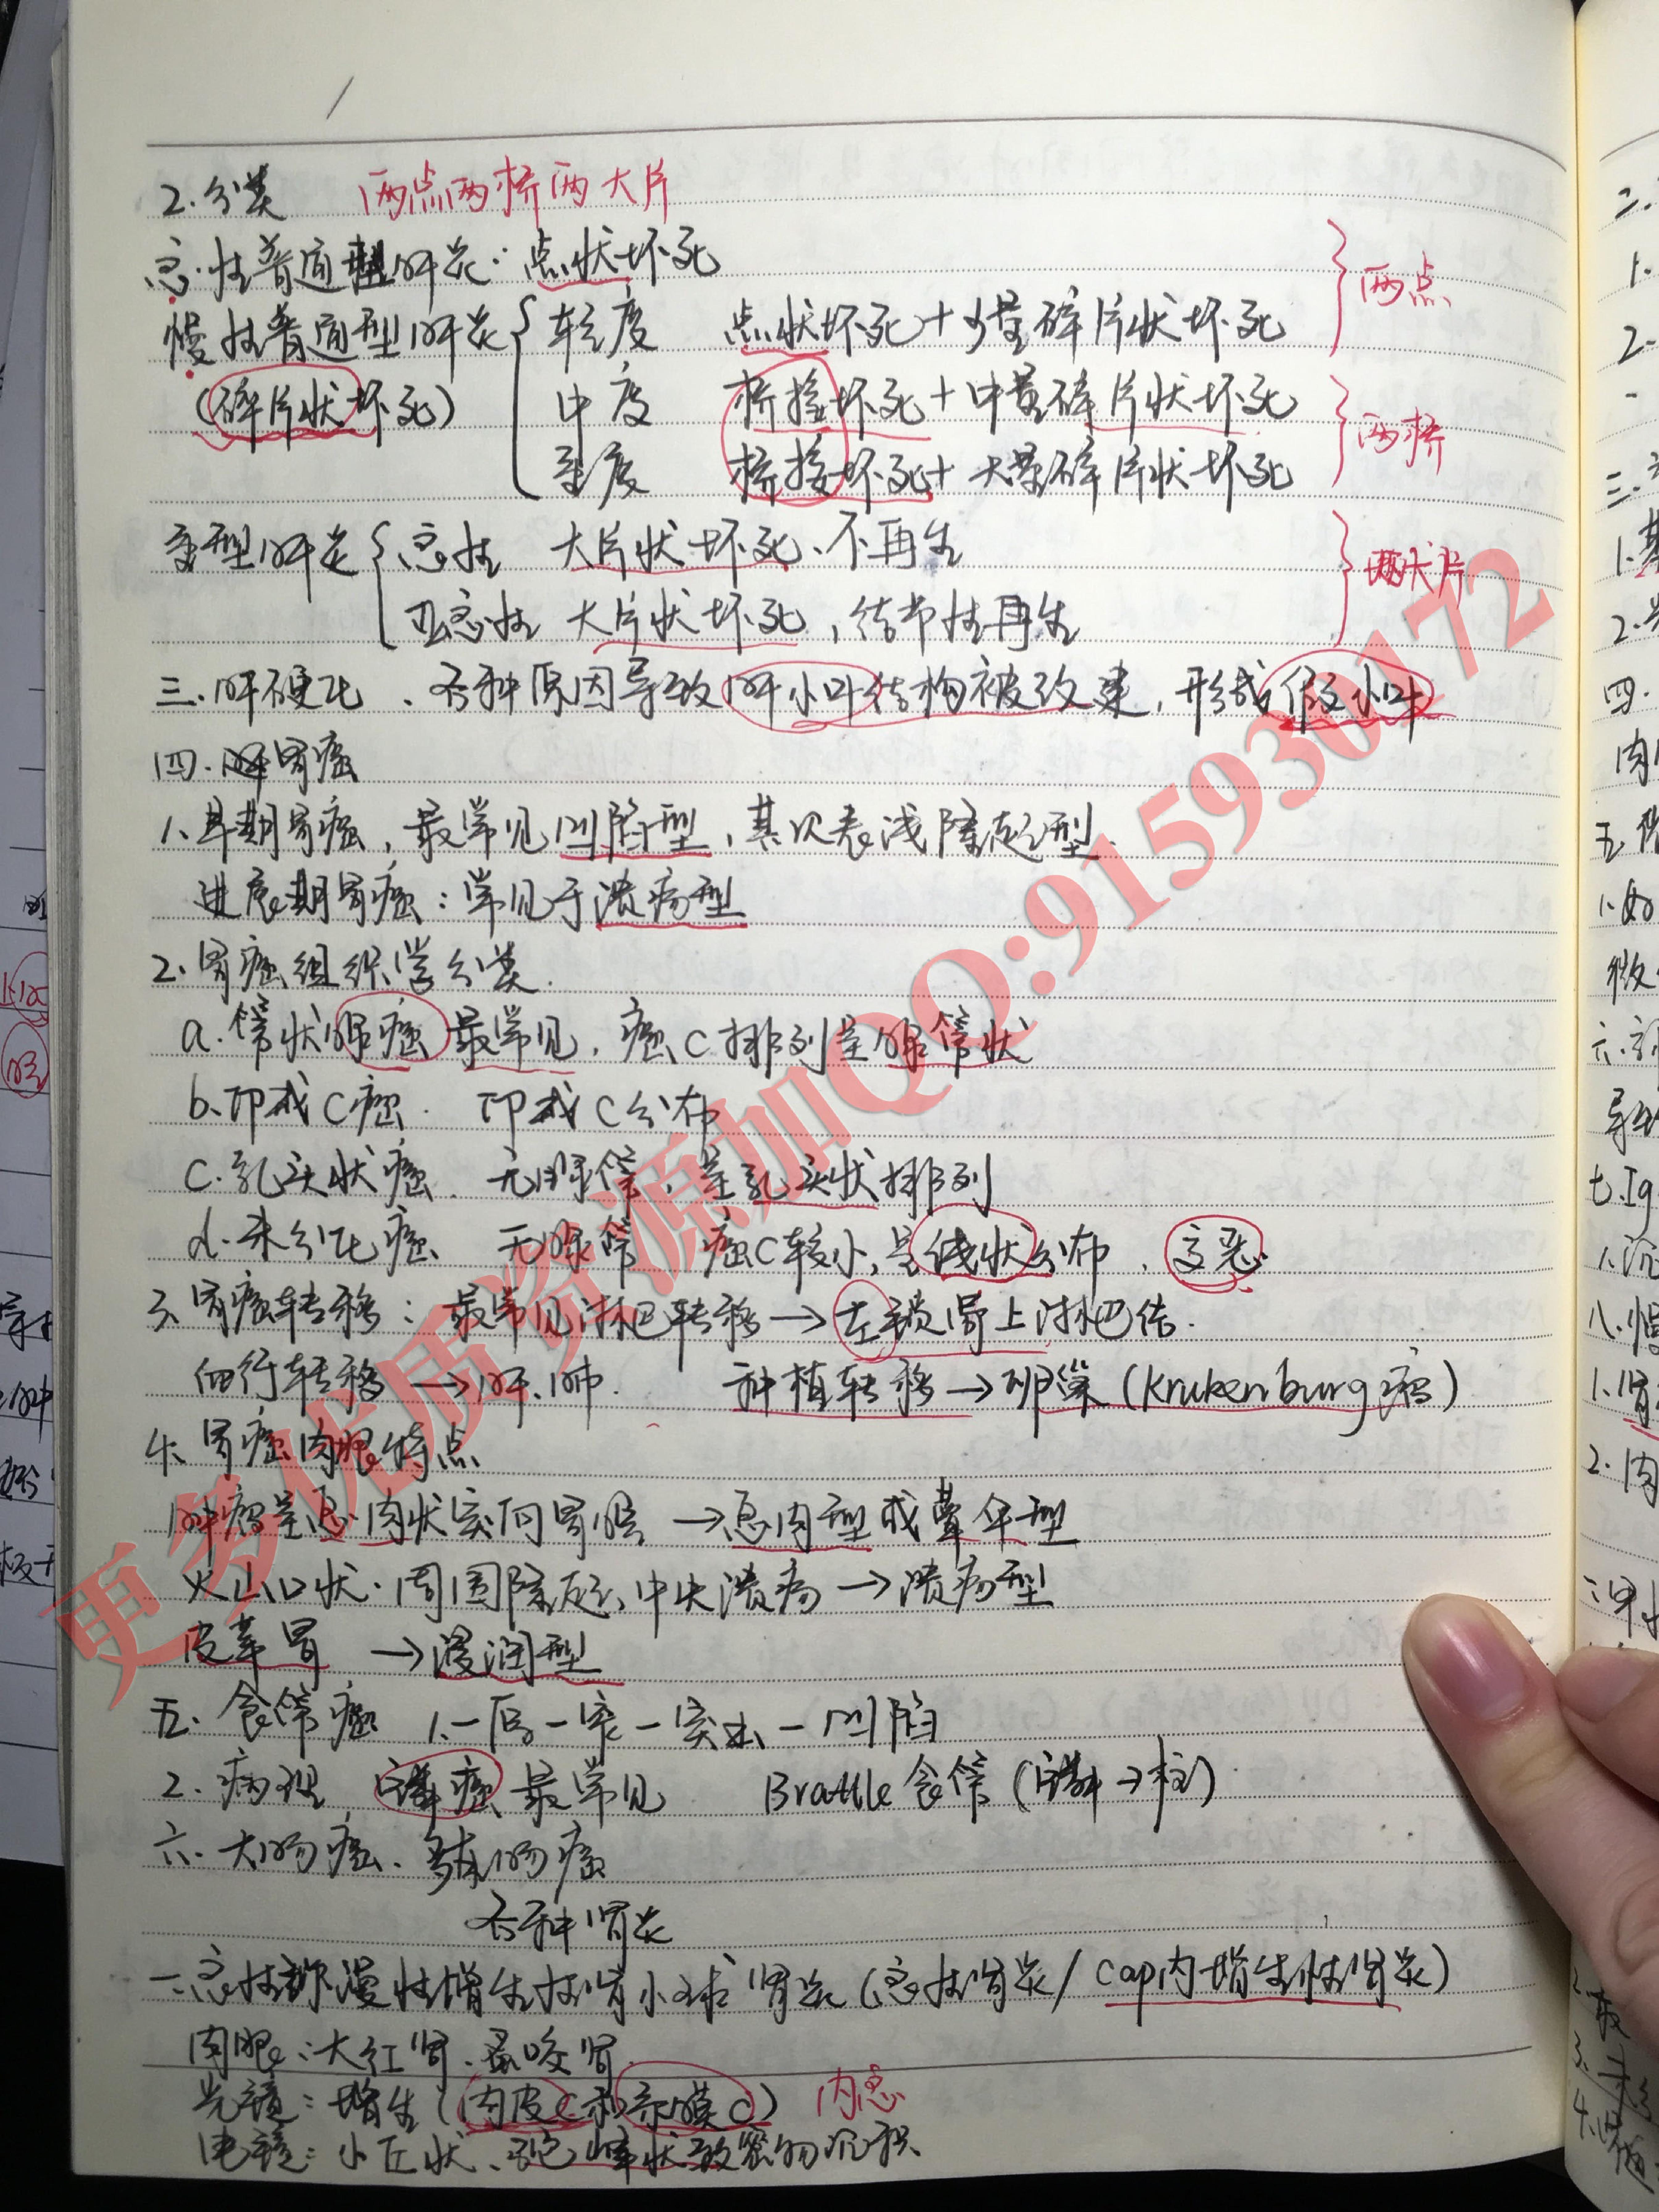 2.分类 两点两桥两大片
急性普通型肝炎：点状坏死
慢性普通型肝炎 { 轻度 点状坏死+少量碎片状坏死 } 两点
(碎片状坏死) 中度 桥接坏死+中量碎片状坏死
重度 桥接坏死+大量碎片状坏死 } 两桥
重型肝炎 { 急性 大片状坏死、不再生 } 两大片
亚急性 大片状坏死，结节性再生
三.肝硬化、各种原因导致肝小叶结构被改建，形成假小叶
四.胃癌
1、早期胃癌，最常见凹陷型，其次表浅隆起型
进展期胃癌：常见于溃疡型
2.胃癌组织学分类.
a.管状腺癌 最常见，癌C排列呈腺管状
b.印戒C癌. 印戒C分布
C.乳头状癌. 无腺管，呈乳头状排列
d.未分化癌 无腺管 癌C较小,呈线状分布，交恶
3、胃癌转移：最常见淋巴转移→左锁骨上淋巴结.
血行转移→肝、肺. 种植转移→卵巢(Krukenburg瘤)
4、胃癌肉眼特点
肿瘤呈息肉状突向胃腔→息肉型或蕈伞型
火山口状.周围隆起、中央溃疡→溃疡型
皮革胃→浸润型
五、食管癌 1.一厚一窄一突出一凹陷
2.病理 鳞癌最常见 Brattle食管(鳞→柱)
六、大肠癌、
各种肾炎
一.急性弥漫性增生性肾小球肾炎(急性肾炎/cap内增生性肾炎)
肉眼：大红肾、蚤咬肾
光镜：增生(内皮C和系膜C) 内急
电镜：小丘状、驼峰状致密物沉积
更多优质资源加QQ:915930172